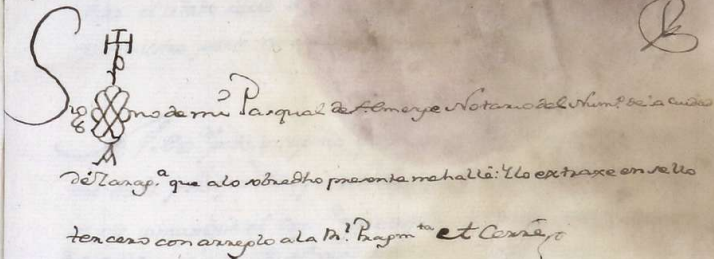 Sig no de mi Pasqual de Almerge Notario del Num.º de la ciudad
de Zarag.ª que a lo sobredho presente me hallé: Y lo extraxe en sello
tercero con arreglo a la Rl. Pragm.ta et Cerré